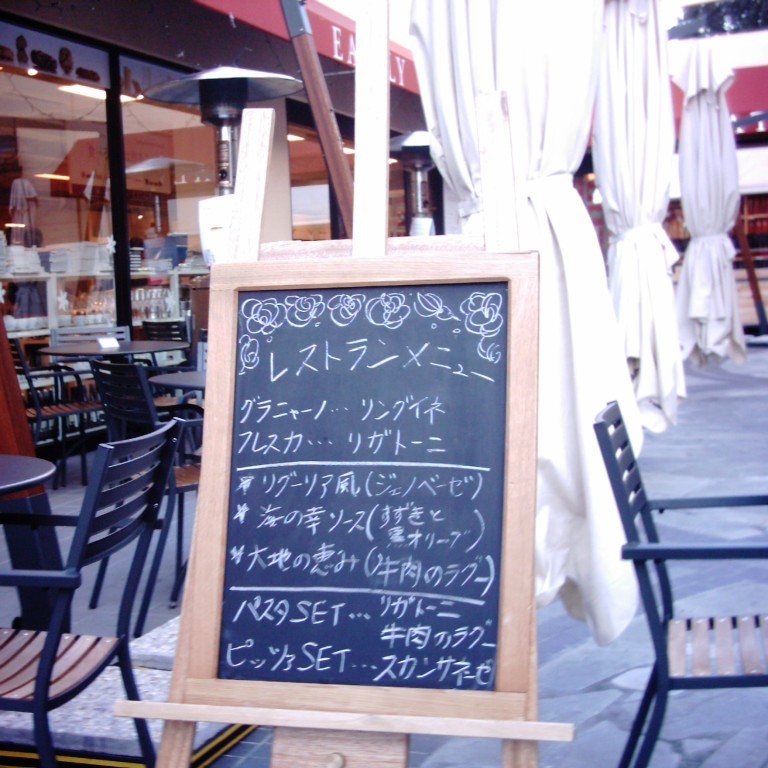 EATALY
レストランメニュー
グラニャーノ… リングイネ
フレスカ… リガトーニ
* リグーリア風(ジェノベーゼ)
* 海の幸ソース(すずきと
黒オリーブ)
* 大地の恵み(牛肉のラグー)
パスタSET… リガトーニ
牛肉のラグー
ピッツァSET… スカンサネーゼ